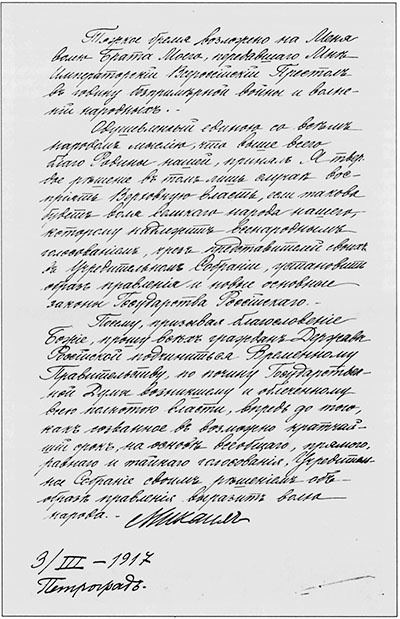 Тяжкое бремя возложено на Меня
волею Брата Моего, передавшего Мнѣ
Императорскій Всероссійскій Престолъ
въ годину безпримѣрной войны и волне-
ній народныхъ. -
Одушевленный единою со всѣмъ
народомъ мыслію, что выше всего
благо Родины нашей, принялъ Я твер-
дое рѣшеніе въ томъ лишь случаѣ вос-
пріять Верховную власть, если такова
будетъ воля великаго народа нашего,
которому надлежитъ всенароднымъ
голосованіемъ, чрезъ представителей своихъ
въ Учредительномъ Собраніи, установить
образъ правленія и новые основные
законы Государства Россійскаго. -
Посему, призывая благословеніе
Божіе, прошу всѣхъ гражданъ Державы
Россійской подчиниться Временному
Правительству, по почину Государствен-
ной Думы возникшему и облеченному
всею полнотою власти, впредь до того,
какъ созванное въ возможно кратчай-
шій срокъ, на основѣ всеобщаго, прямого,
равнаго и тайнаго голосованія, Учредитель-
ное Собраніе своимъ рѣшеніемъ объ
образѣ правленія выразитъ волю
народа. -
Михаилъ
3/III - 1917
Петроградъ.